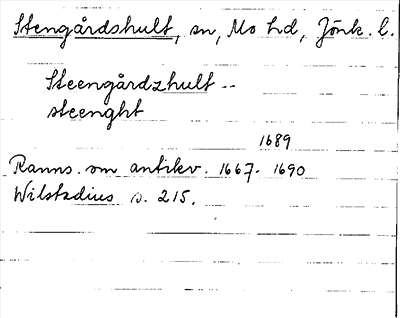 Stengårdshult, sn, Mo hd, Jönk. l.
Steengårdzhult --
steenght
1689
Ranns. om antikv. 1667-1690
Wilstadius s. 215.